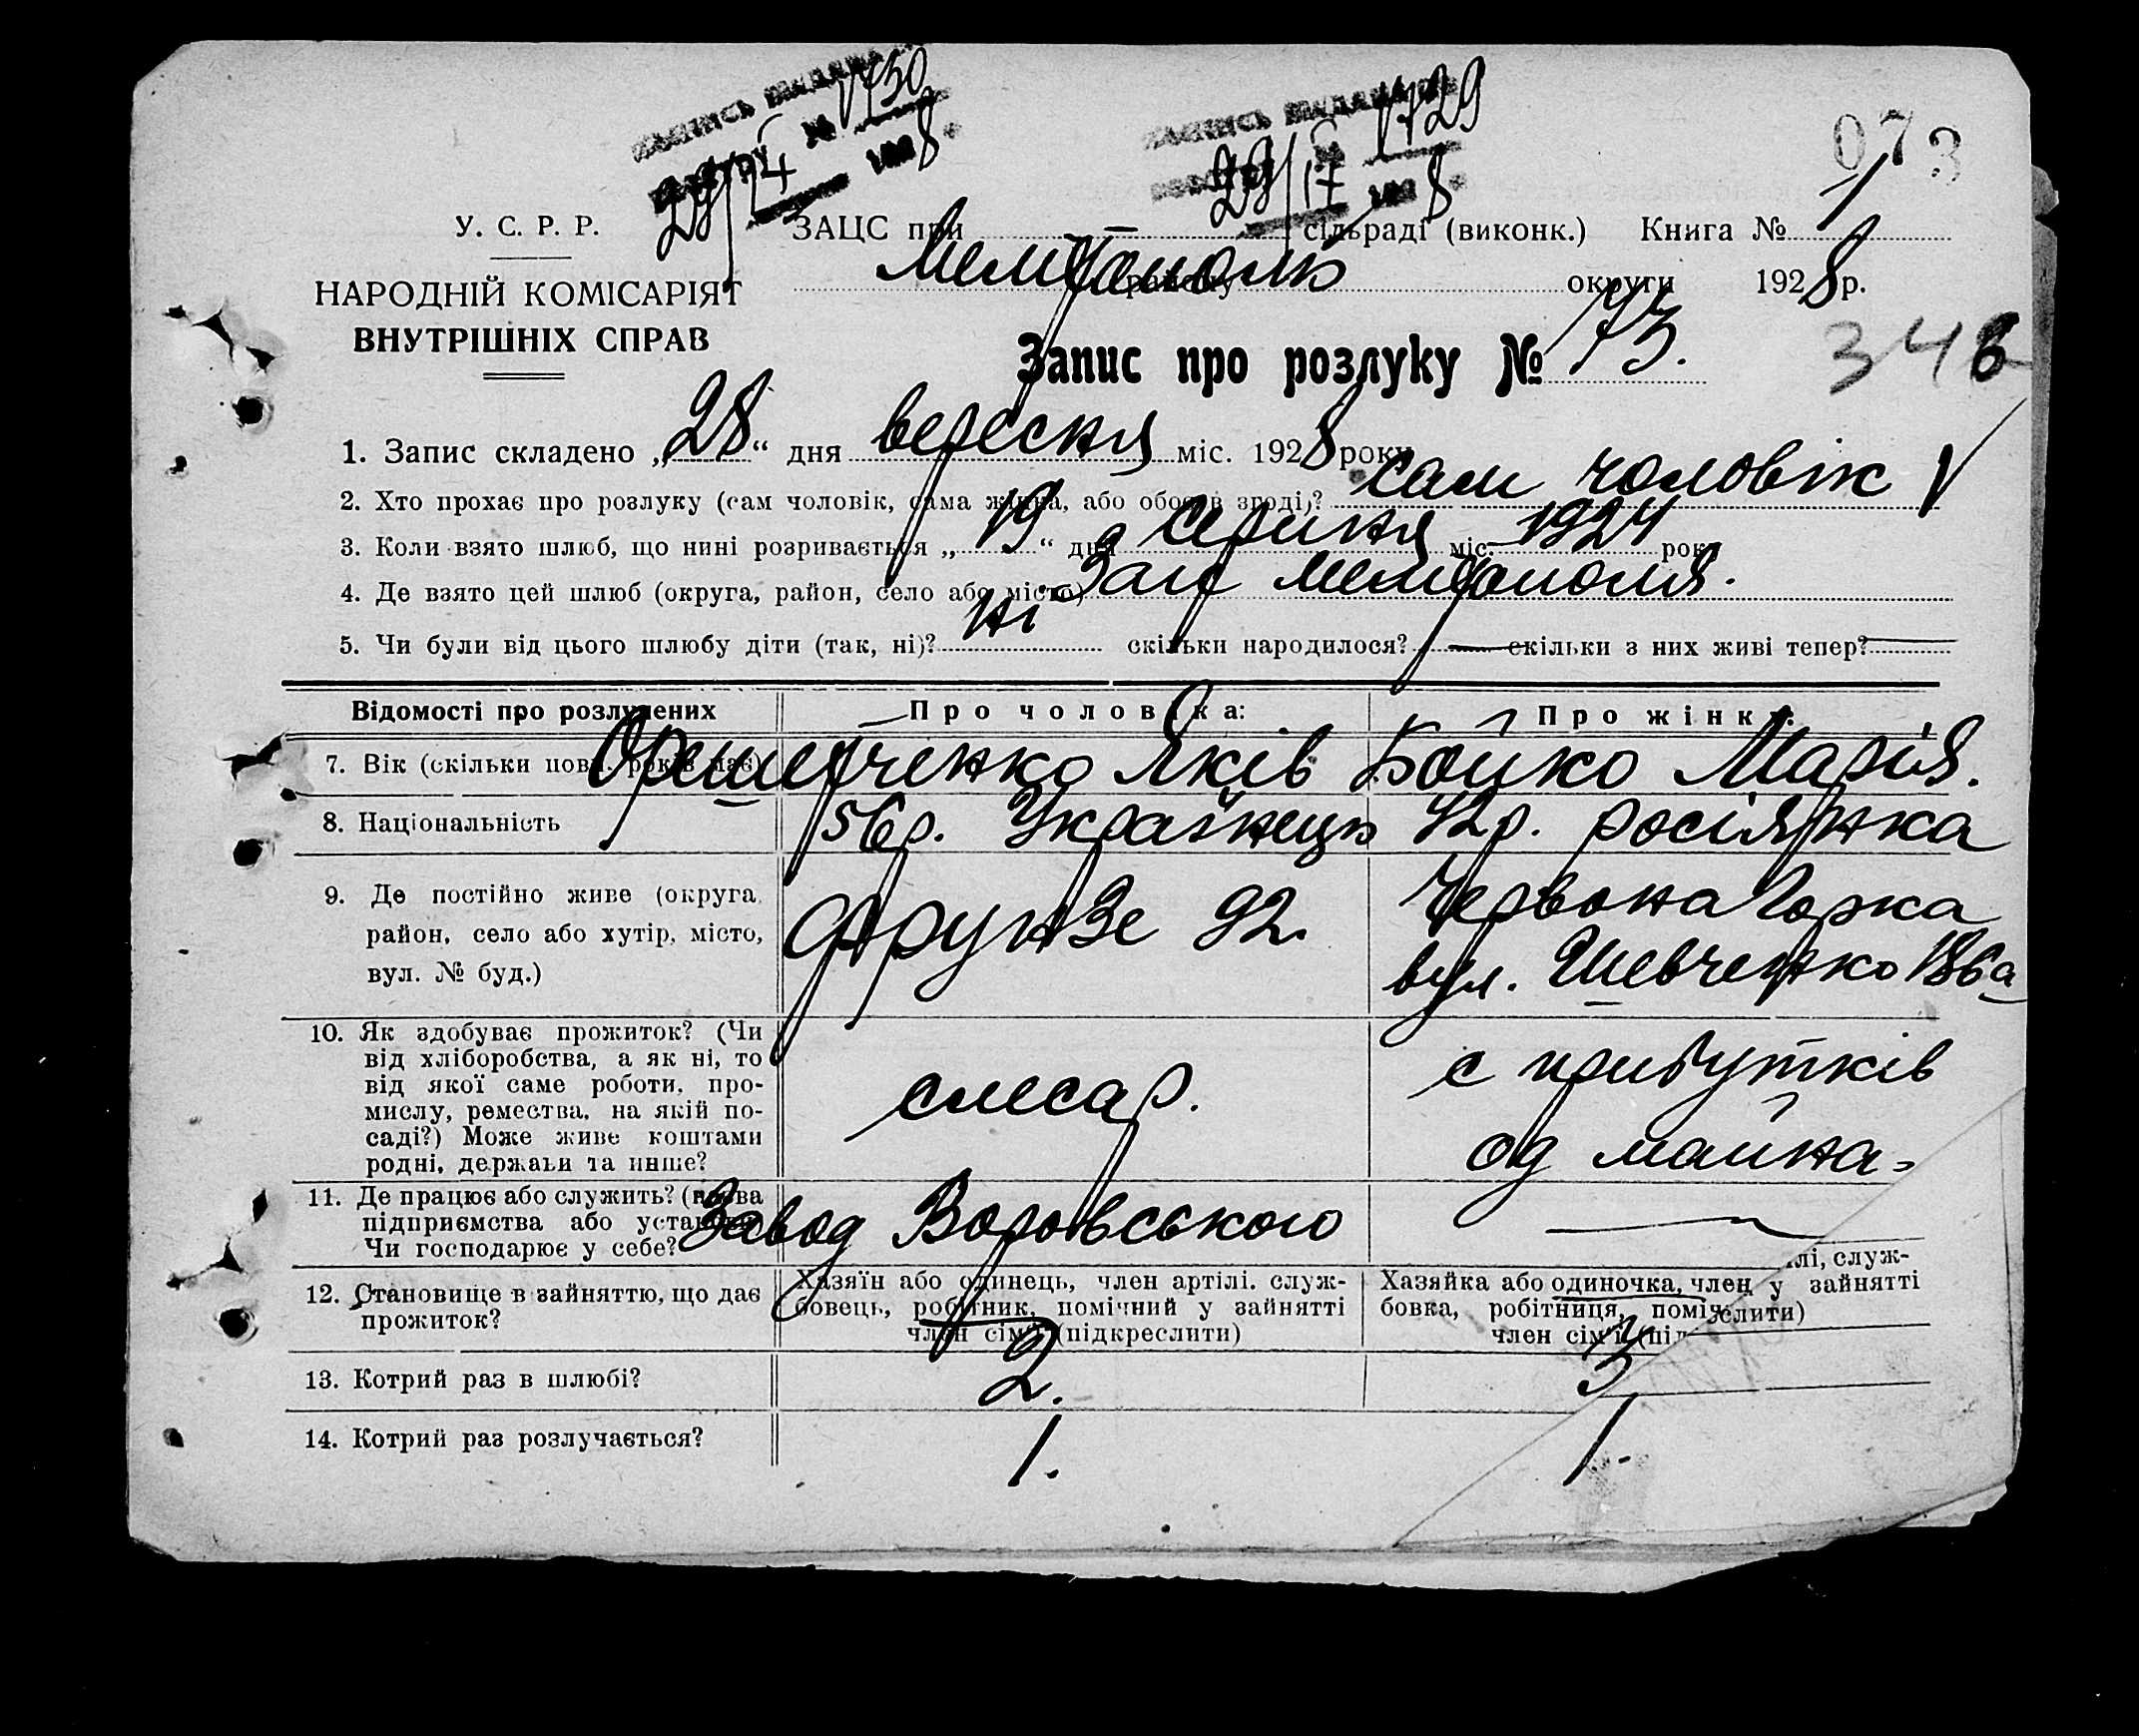 1730
29/
1928
1729
29/
1928
073
У. С. Р. Р.
ЗАЦС при сільраді (виконк.) Книга № 1
НАРОДНІЙ КОМІСАРІЯТ
ВНУТРІШНІХ СПРАВ
Мелітополь
району округи 1928 р.
Запис про розлуку № 73.
346
1. Запис складено „28“ дня вересня міс. 1928 року
2. Хто прохає про розлуку (сам чоловік, сама жінка, або обоє в згоді)? сам чоловік
3. Коли взято шлюб, що нині розривається „19“ дня серпня міс. 1924 року
4. Де взято цей шлюб (округа, район, село або місто) Заґс Мелітополя.
5. Чи були від цього шлюбу діти (так, ні)? ні скільки народилося? — скільки з них живі тепер? —
Відомості про розлучених Про чоловіка: Про жінку:
7. Вік (скільки повн. років має) Орешетченко Яків Бойко Марія.
8. Національність 56 р. Українець 42 р. росіянка
9. Де постійно живе (округа, район, село або хутір, місто, вул. № буд.)
Фрунзе 92.
Червона Горка
вул. Шевченко 186а
10. Як здобуває прожиток? (Чи
від хліборобства, а як ні, то
від якої саме роботи, про-
мислу, ремества, на якій по-
саді?) Може живе коштами
родні, держави та инше?
слесар.
с прибутків
од майна
11. Де працює або служить? (назва
підприємства або установи
Чи господарює у себе?
Завод Воровського
—
12. Становище в зайняттю, що дає
прожиток?
Хазяїн або одинець, член артілі, служ-
бовець, робітник, помічний у зайнятті
член сім'ї (підкреслити)
лі, служ-
Хазяйка або одиночка, член у зайнятті
бовка, робітниця, поміж слити)
член сім'ї (під
13. Котрий раз в шлюбі? 2. 3
14. Котрий раз розлучається? 1. 1.